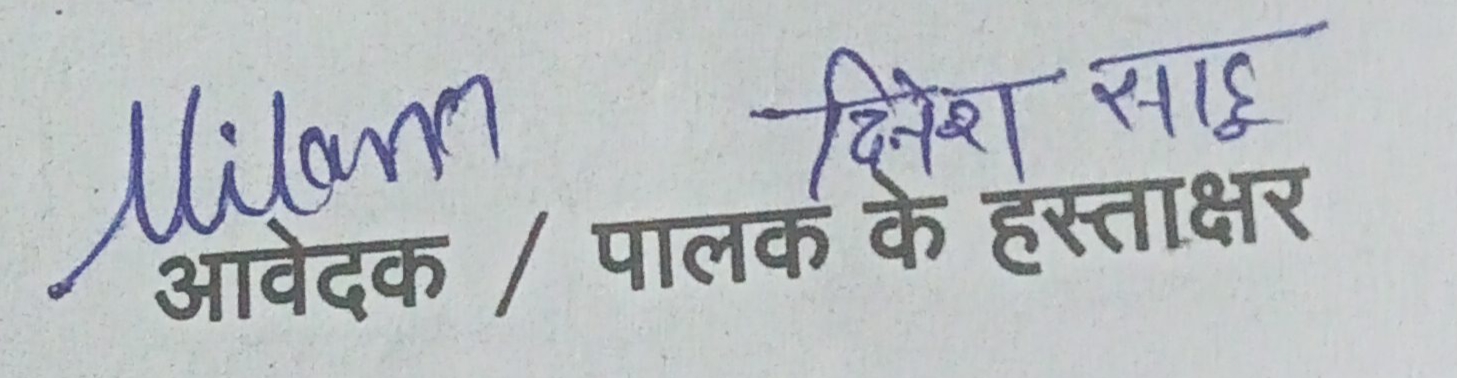 Milan दिनेश साहू
आवेदक / पालक के हस्ताक्षर